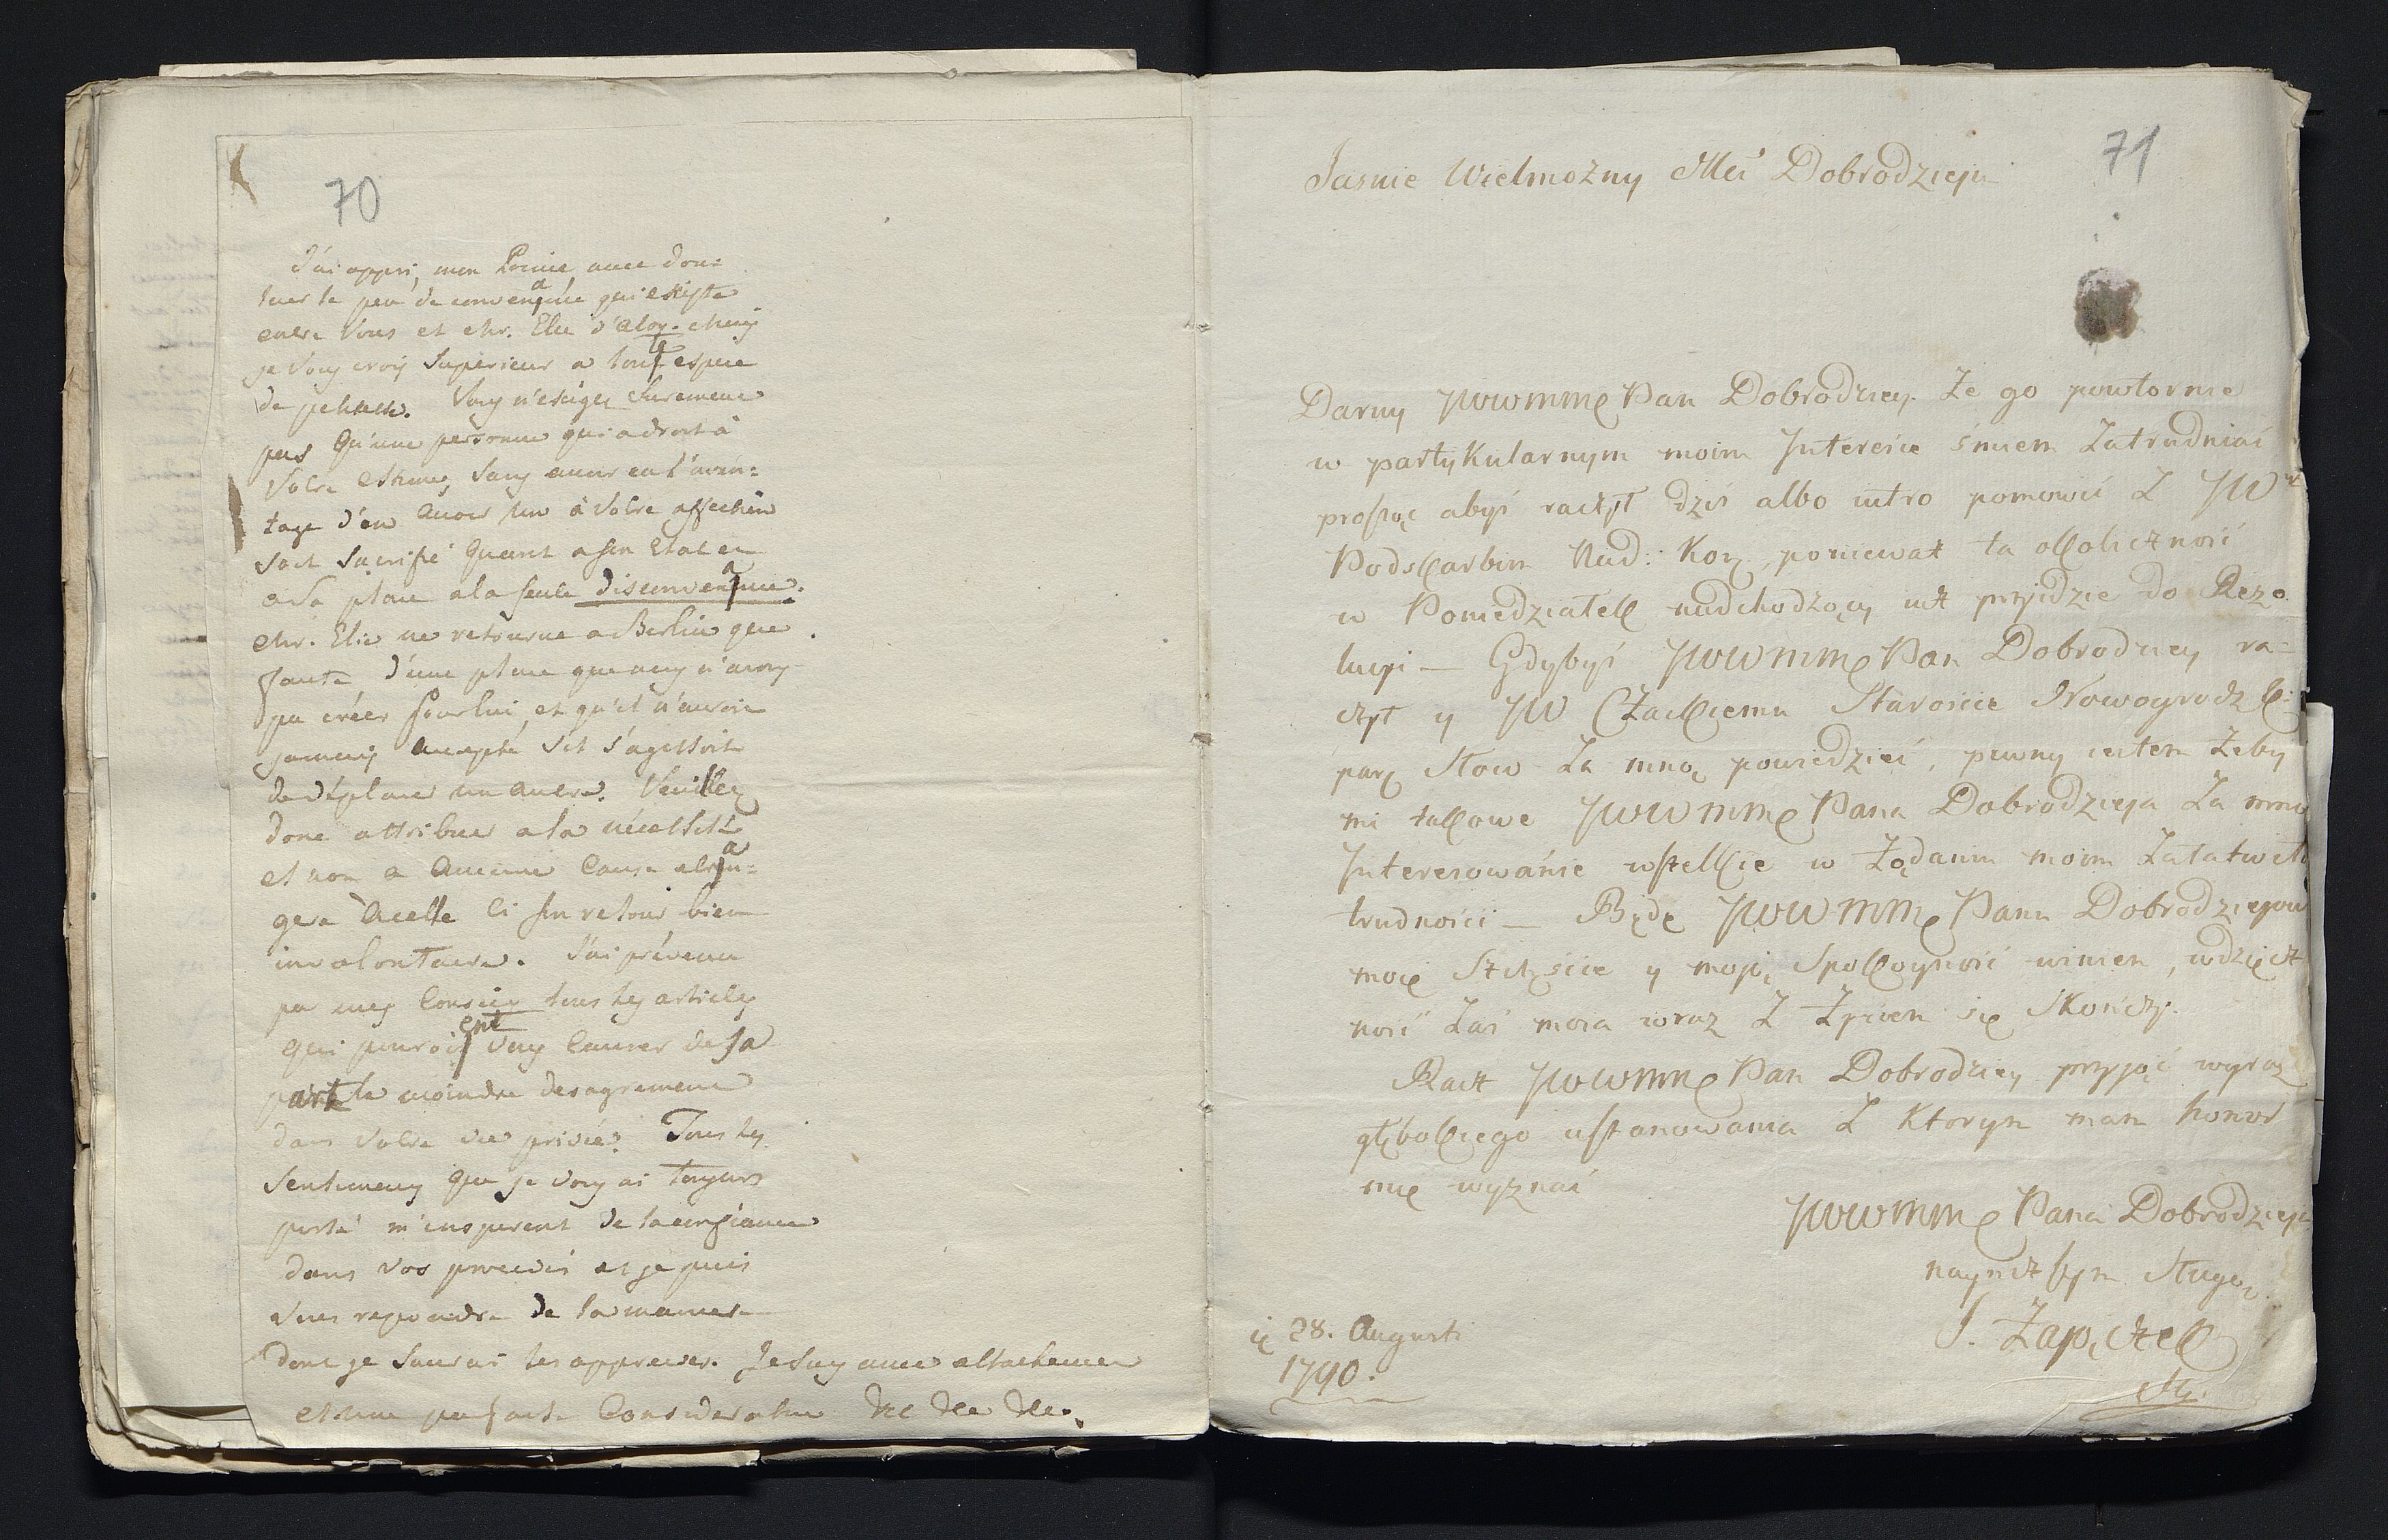 70
J'ai appri, mon Prince avec dou=
leur le peu de convenance qui existe
entre Vous et Mr. Elie d'Aloy. Mais
je Vous crois Superieur a toute espece
de petitesse. Vous n'exigez Surement
pas Qu'une personne qui a droit à
Votre estime, Sans avoir eu l'avan=
tage d'en avoir un à Votre affection
soit Sacrifié Quant a son Etat et
a Sa place a la seule disconvenance.
Mr. Elie ne retourne a Berlin que
faute d'une place que nous n'avons
pu créer pour lui, et qu'il n'auroit
jamais accepté s'il s'agissoit
de déplacer un autre. Veuillez
donc attribuer a la nécessité
et non a Aucune Cause etran=
gere à celle ci son retour bien
involontaire. J'ai prévenu
par mes Conseils tous les articles
qui pouroient Vous Causer de sa
part le moindre desagrement
dans Votre vie privée. Tous les
Sentimens que je Vous ai toujours
porté m'inspirent de la confiance
dans vos procedés et je puis
Vous repondre de la maniere
dont je Saurai les apprecier. Je suis avec attachement
et une parfaite Consideration &c &c &c.
71
Jasnie Wielmożny Mci Dobrodzieju
Daruy JWWMM Pan Dobrodziey że go powtornie
w partykularnym moim Interesie śmiem zatrudniać
prosząc abyś raczył dziś albo iutro pomowić z JW
Podskarbim Nad: Kor, ponieważ ta okoliczność
w Poniedziałek nadchodzący iuż przyidzie do Rezo
lucyi — Gdybyś JWWMM Pan Dobrodziey ra=
czył y JW Czackiemu Staroście Nowogrodzk:
parę słow za mną powiedzieć, pewny iestem żeby
mi takowe JWWMM Pana Dobrodzieja za mną
Interesowanie wszelkie w żądaniu moim załatwiło
trudności — Będę JWWMM Panu Dobrodziejow
moie Szczęście y moję Spokoyność winien, wdzięcz
ność zaś moia wraz z życiem się skończy.
Racz JWWMM Pan Dobrodziey przyjąć wyraz
głębokiego uszanowania z ktorym mam honor
się wyznać
JWWMM Pana Dobrodzieja
nayniższym Sługą
J. Zajączek
28. Augusti
1790.